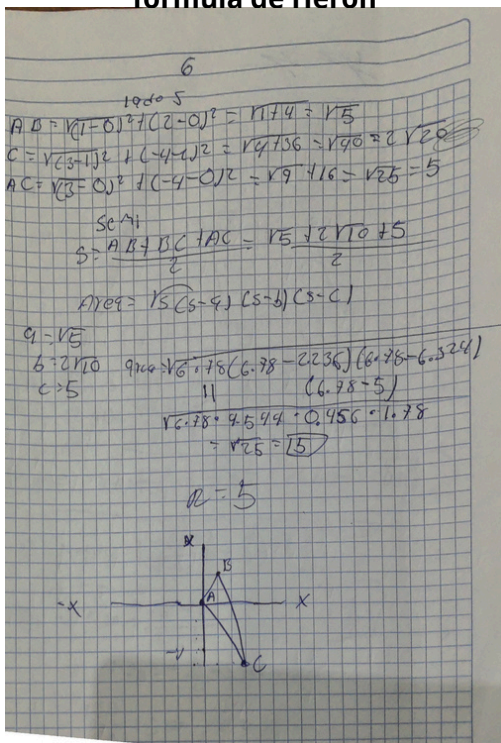 formula de Heron
6
lados
AB = √(1-0)²+(2-0)² = √1+4 = √5
C = √(3-1)² + (-4-2)² = √4+36 = √40 = 2√20
AC = √(3-0)² + (-4-0)² = √9+16 = √25 = 5
Semi
S = AB+BC+AC / 2 = √5+2√10+5 / 2
Area = √s(s-a)(s-b)(s-c)
a = √5
b = 2√10 Area = √6.78(6.78-2236)(6.78-6.324)
c = 5 (6.78-5)
√6.78·4.544·0.456·1.78
= √25 = 5
R = 5
B
-x A x
C